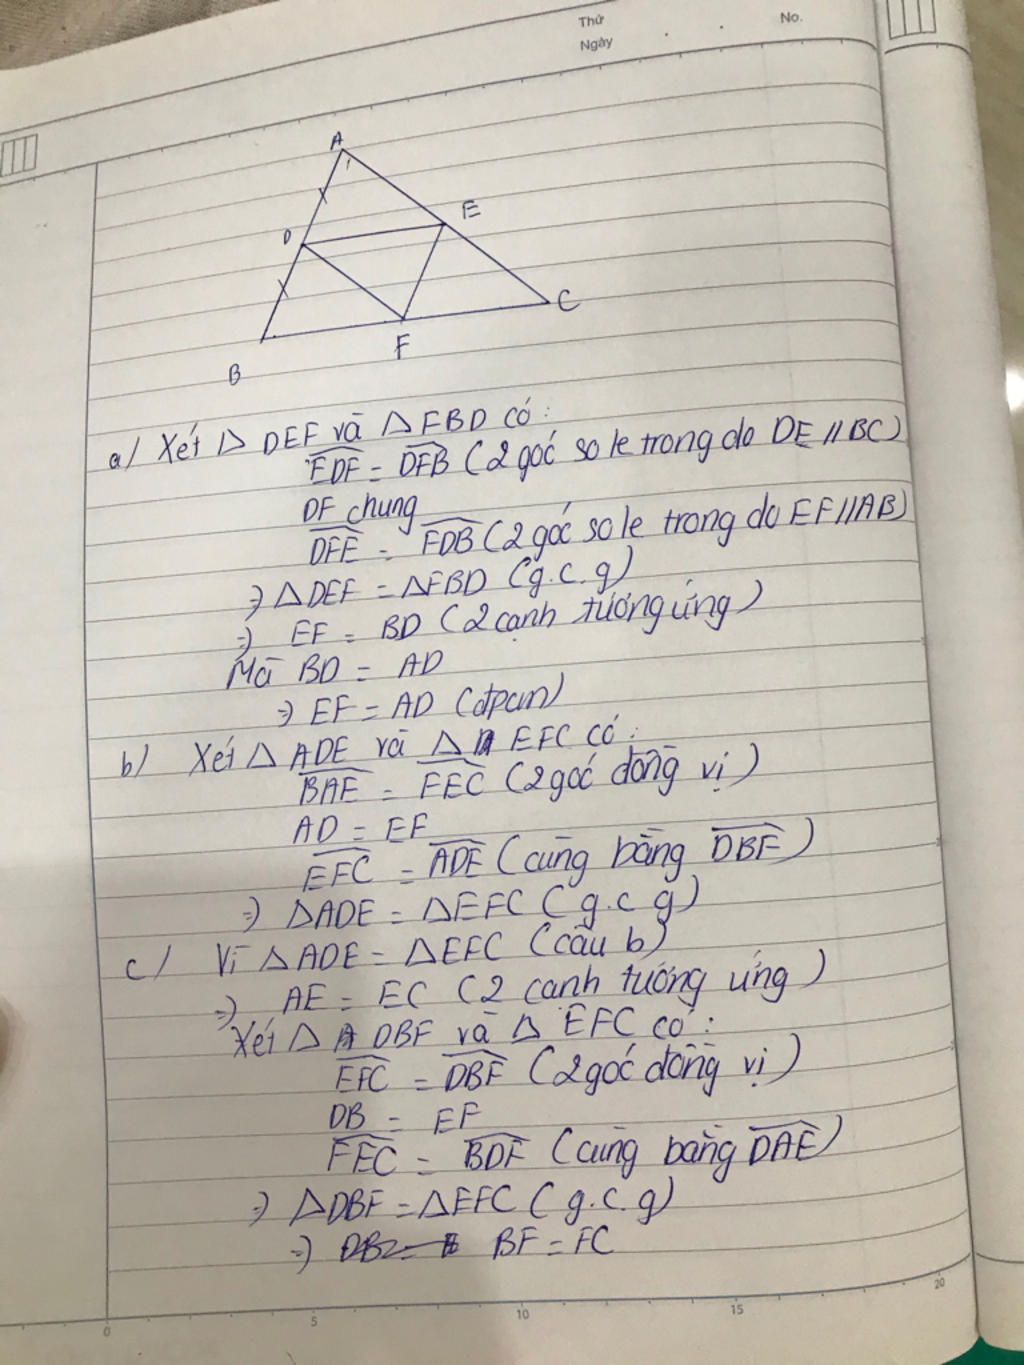 Thứ
No.
Ngày
A
D
E
C
B
F
a/ Xét △ DEF và △ FBD có:
EDF = DFB (2 góc so le trong do DE // BC)
DF chung
DFE = FDB (2 góc so le trong do EF // AB)
⇒ △DEF = △FBD (g.c.g)
⇒ EF = BD (2 cạnh tương ứng)
Mà BD = AD
⇒ EF = AD (đpcm)
b/ Xét △ ADE và △ EFC có:
BAE = FEC (2 góc đồng vị)
AD = EF
EFC = ADE (cùng bằng DBF)
⇒ △ADE = △EFC (g.c.g)
c/ Vì △ADE = △EFC (câu b)
⇒ AE = EC (2 cạnh tương ứng)
Xét △ DBF và △ EFC có:
EFC = DBF (2 góc đồng vị)
DB = EF
FEC = BDF (cùng bằng DAE)
⇒ △DBF = △EFC (g.c.g)
⇒ BF = FC
0 5 10 15 20